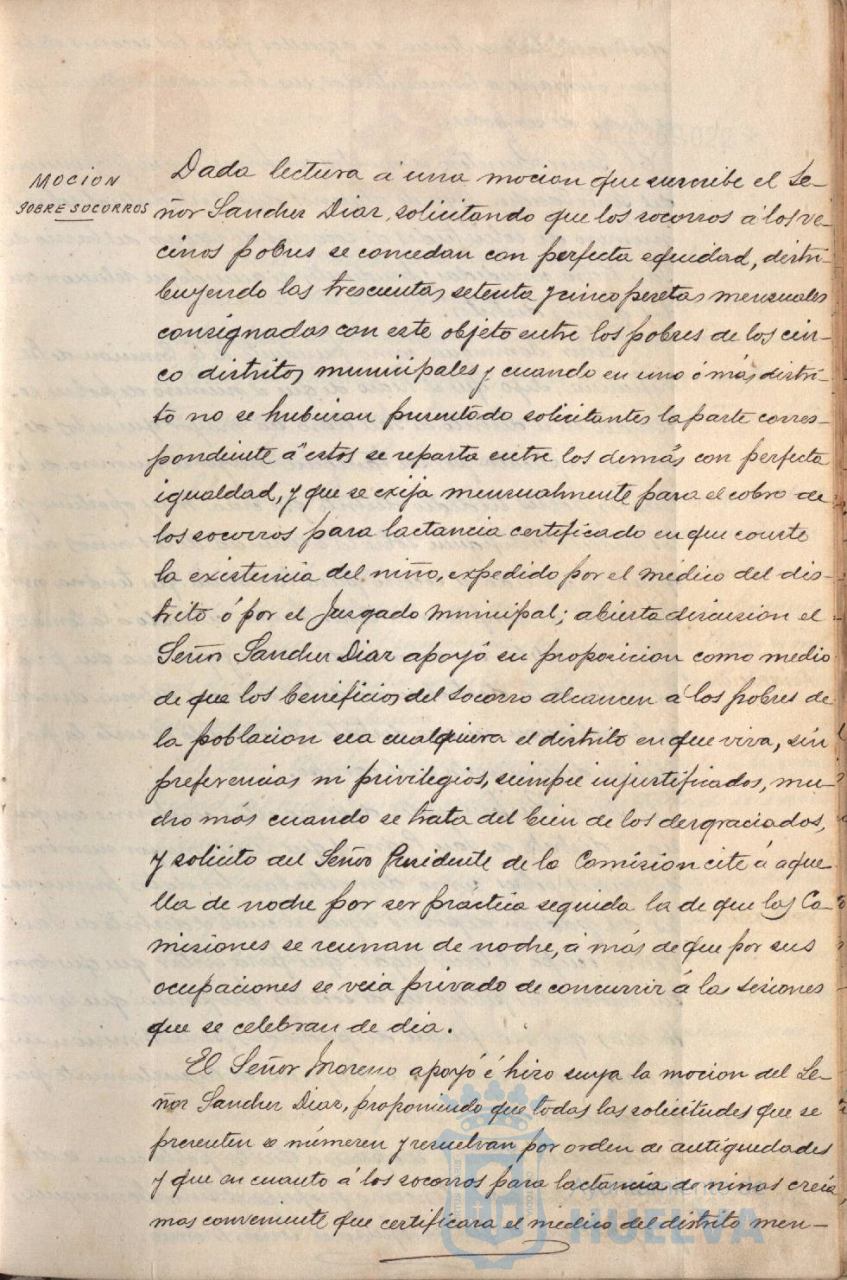 MOCION
SOBRE SOCORROS
Dada lectura á una mocion que suscribe el Se-
ñor Sanchez Diaz, solicitando que los socorros á los ve-
cinos pobres se concedan con perfecta equidad, distri-
buyendo las trescientas setenta y cinco pesetas mensuales
consignadas con este objeto entre los pobres de los cin-
co distritos municipales y cuando en uno ó más distri-
to no se hubieran presentado solicitantes la parte corres-
pondiente á estos se reparta entre los demás con perfecta
igualdad, y que se exija mensualmente para el cobro de
los socorros para lactancia certificado en que conste
la existencia del niño, expedido por el médico del dis-
trito ó por el Juzgado Municipal; abierta discusion el
Señor Sanchez Diaz apoyó su proposicion como medio
de que los beneficios del socorro alcancen á los pobres de
la poblacion sea cualquiera el distrito en que viva, sin
preferencias ni privilegios, siempre injustificados, mu-
cho más cuando se trata del bien de los desgraciados,
y solicito del Señor Presidente de la Comision cite á aque-
lla de noche por ser práctica seguida la de que las Co-
misiones se reunan de noche, á más de que por sus
ocupaciones se veia privado de concurrir á las sesiones
que se celebran de dia.
El Señor Moreno apoyó é hizo suya la mocion del Se-
ñor Sanchez Diaz, proponiendo que todas las solicitudes que se
presenten se númeren y resuelvan por orden de antiguedades
y que en cuanto á los socorros para lactancia de niños creia
mas conveniente que certificara el médico del distrito men-
HUELVA